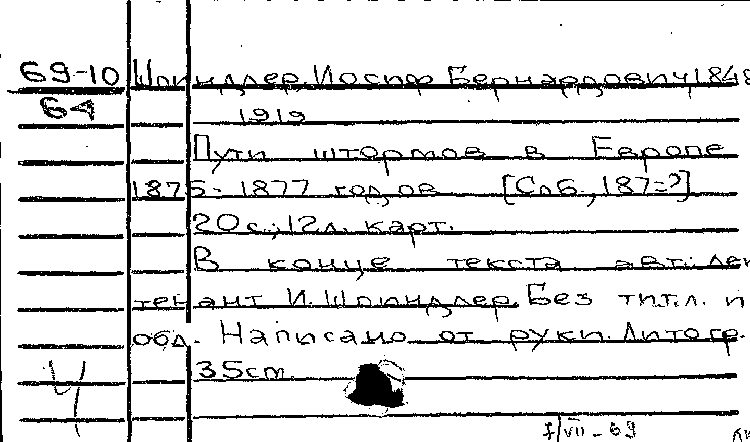 69-10 Шпиндлер, Иосиф Бернардович, 1848
64 1919
Пути штормов в Европе
1875-1877 годов [Спб., 187=?]
20 с.; 12 л. карт.
В конце текста авт.: лей
тенант И. Шпиндлер. Без тит. л. и
обл. Написано от руки. Литогр.
35cm
VII-69